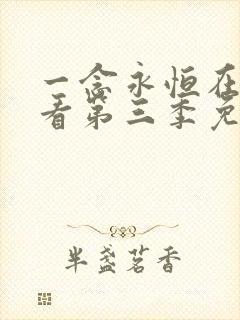 一念永恒在
看第三季免
半盏茗香